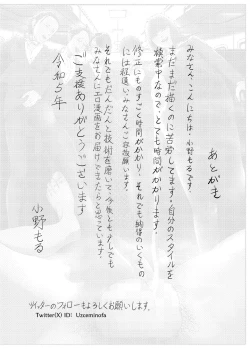 あとがき
みなさん、こんにちは、小野もるです。
まだまだ描くのに苦労してます。自分のスタイルを
模索中なので、とても時間がかかります。
修正にものすごく時間がかかり、それでも納得のいくもの
には程遠い、みなさんご容赦願います。
それでもだんだんと技術を磨いて、今後とも少しでも
みなさんにエロ漫画をお届けできたらと思っています。
ご支援ありがとうございます
令和5年
小野もる
ツイッターのフォローもよろしくお願いします。
Twitter(X) ID: Uzxeminofa